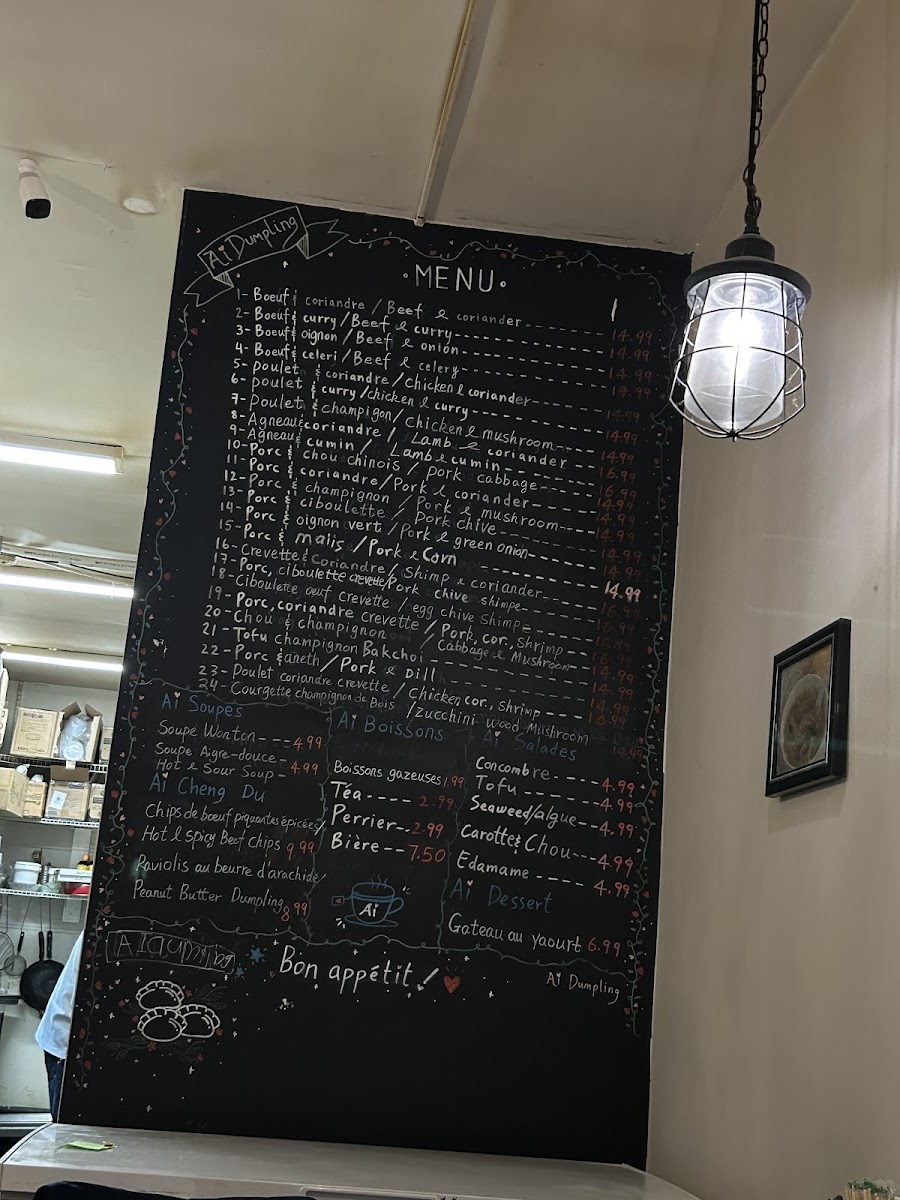 Ai Dumpling
MENU
1- Boeuf & coriandre / Beef & coriander 14.99
2- Boeuf & curry / Beef & curry 14.99
3- Boeuf & oignon / Beef & onion 14.99
4- Boeuf & celeri / Beef & celery 14.99
5- poulet & coriandre / Chicken & coriander 14.99
6- poulet & curry / chicken & curry 14.99
7- poulet & champigon / Chicken & mushroom 14.99
8- Agneau & coriandre / Lamb & coriander 16.99
9- Agneau & cumin / Lamb & cumin 16.99
10- Porc & chou chinois / pork cabbage 14.99
11- Porc & coriandre / Pork & coriander 14.99
12- Porc & champignon / Pork & mushroom 14.99
13- Porc & ciboulette / Pork chive 14.99
14- Porc & oignon vert / Pork & green onion 14.99
15- Porc & malis / Pork & Corn 14.99
16- Crevette & Coriandre / Shimp & coriander 16.99
17- Porc, ciboulette crevette / Pork chive shimpe
18- Ciboulette oeuf crevette / egg chive shimpe
19- Porc, coriandre crevette / Pork, cor., shrimp
20- Chou & champignon / Cabbage & Mushroom
21- Tofu champignon Bakchoi
22- Porc & aneth / Pork & Dill
23- Poulet coriandre crevette / Chicken, cor., shrimp
24- Courgette champignon de Bois / Zucchini Wood Mushroom
Ai Soupes
Soupe Wonton 4.99
Soupe Aigre-douce
Hot & Sour Soup 4.99
Ai Cheng Du
Chips de bœuf piquantes épicées/
Hot & spicy Beef Chips 9.99
Raviolis au beurre d'arachide/
Peanut Butter Dumpling 8.99
Ai Boissons
Boissons gazeuses 1.99
Téa 2.99
Perrier 2.99
Bière 7.50
Ai
Ai Salades
Concombre 4.99
Tofu 4.99
Seaweed/algue 4.99
Carotte & Chou 4.99
Edamame 4.99
Ai Dessert
Gateau au yaourt 6.99
AiDumpling
Bon appétit!
Ai Dumpling